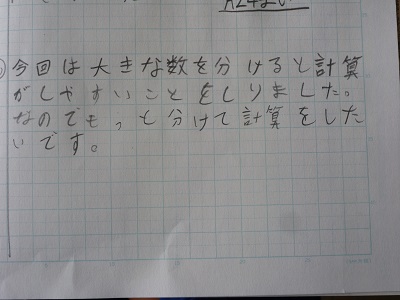 今回は大きな数を分けると計算
がしやすいことをしりました。
なのでもっと分けて計算をした
いです。